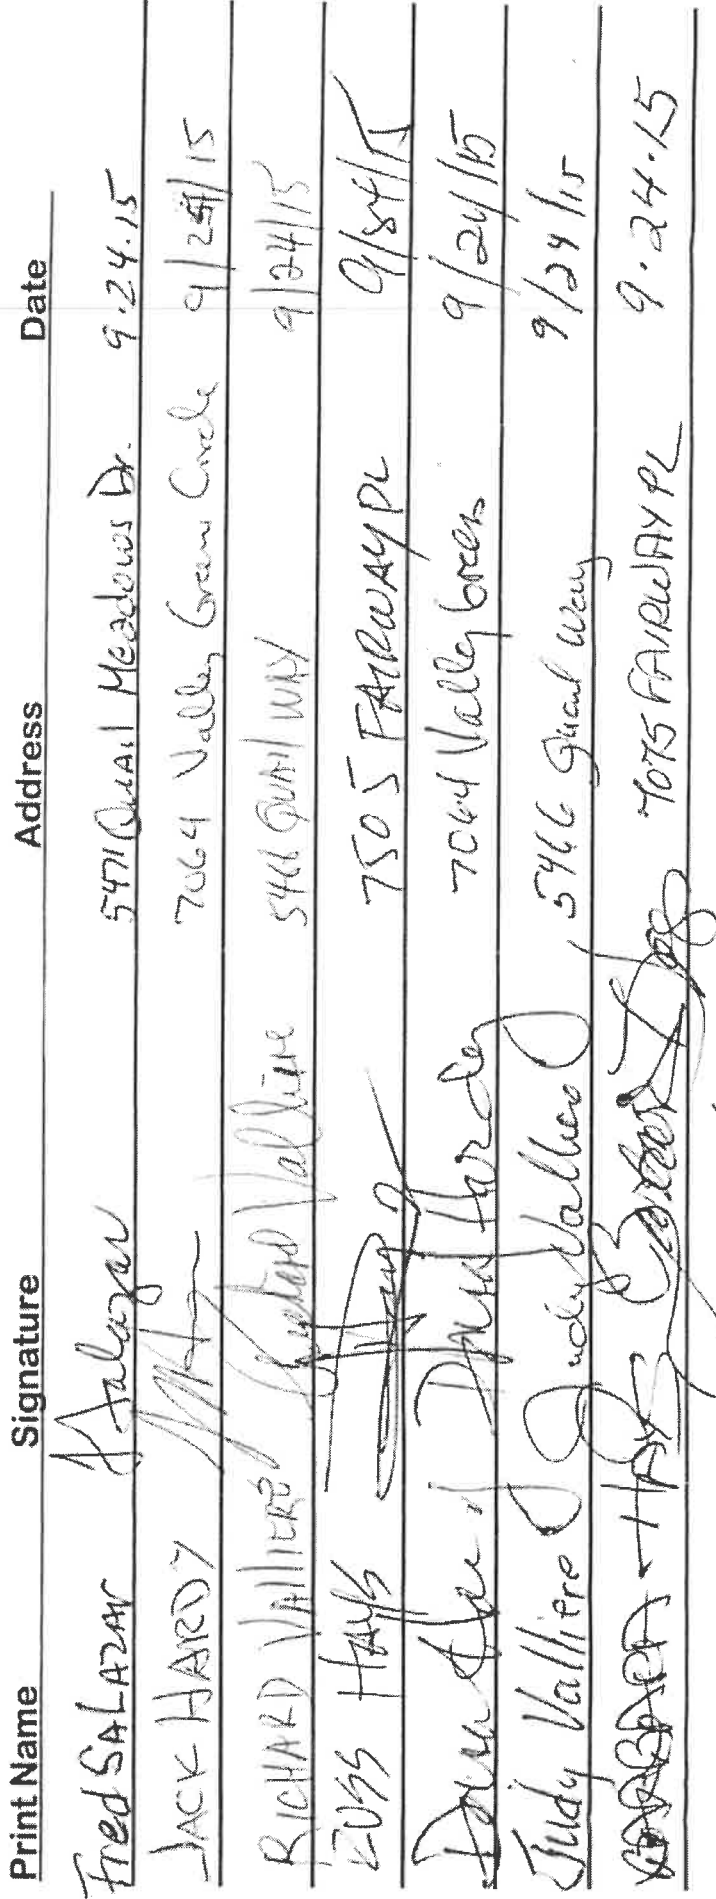 Print Name Signature Address Date
Fred SALAZAR F Salazar 5471 QUAIl Meadows Dr. 9.24.15
JACK HARDY 7064 Valley Greens Circle 9/24/15
RICHARD VAllIERE Richard Valliere 5466 QUAIl WAY 9/24/15
RUSS HAYS 7505 FAIRWAY PL 9/24/15
Hardy 7064 Valley Green 9/24/15
Judy Valliere Judy Valliere 5466 Quail Way 9/24/15
BARBARA HAYS Barbara Hays 7075 FAIRWAY PL 9.24.15